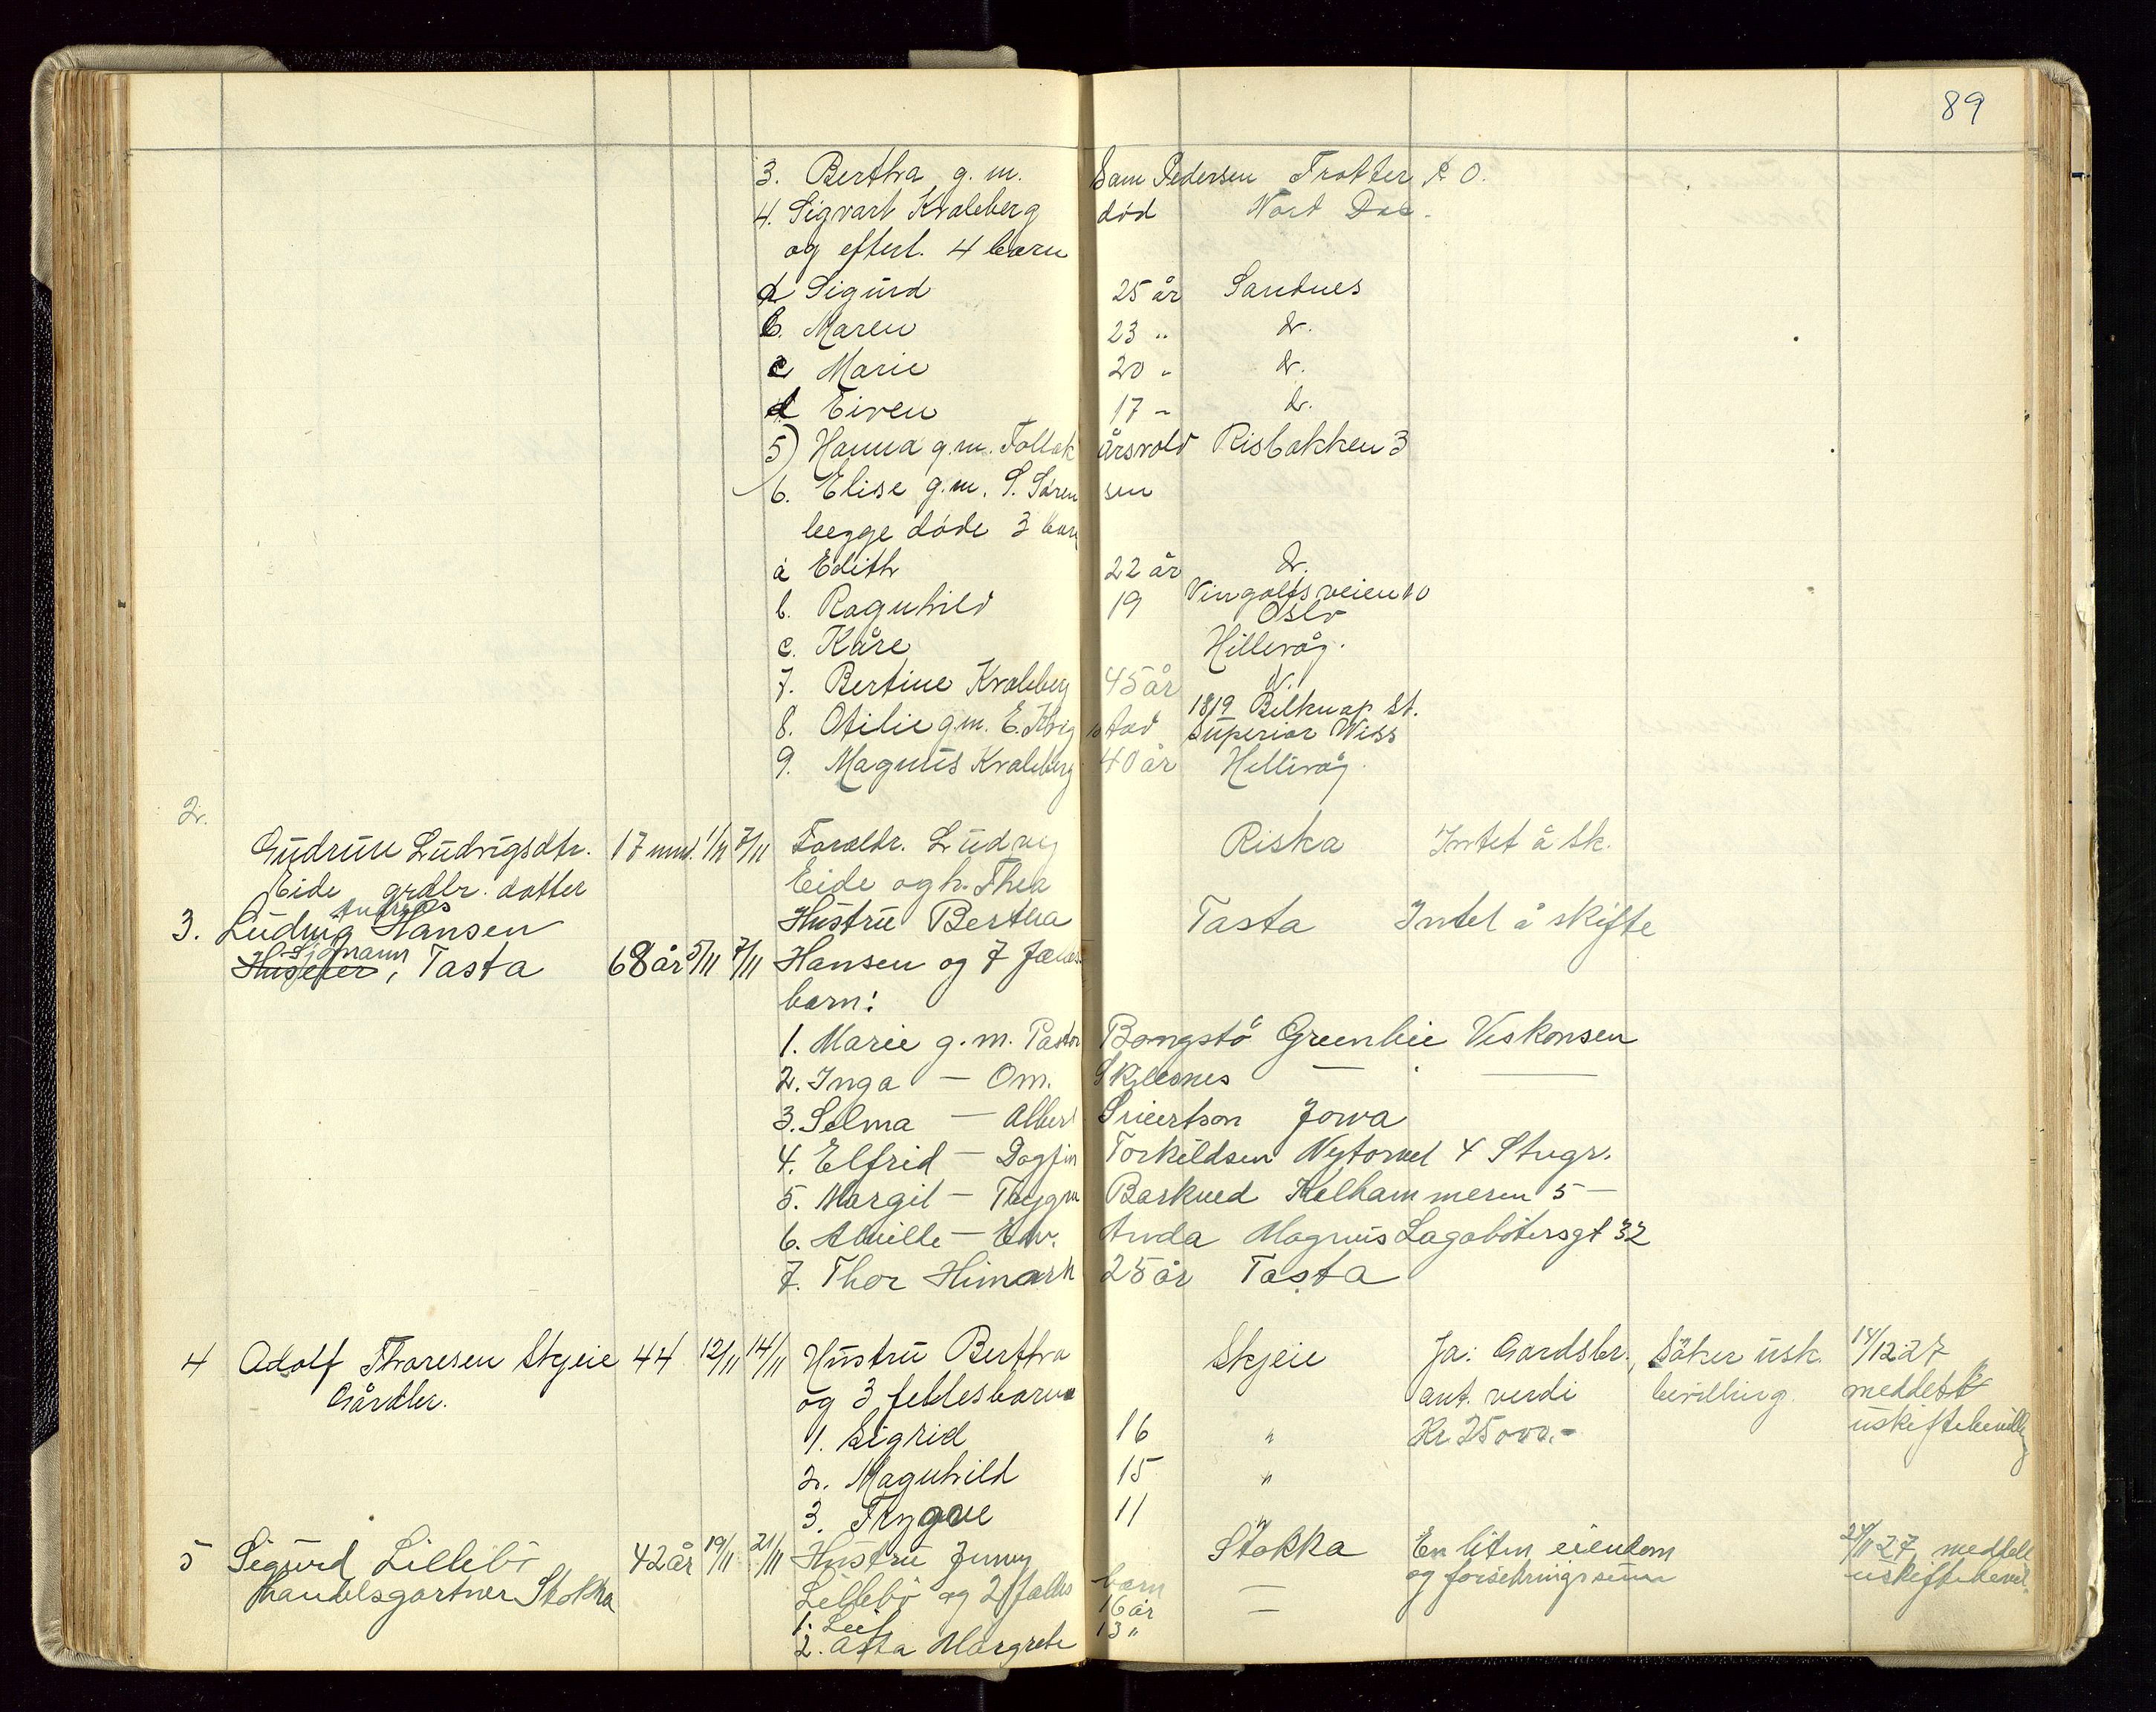 89
3. Bertha g. m. Sam Pedersen Trotter P O.
4. Sigvart Kvaleberg død Nord Dac.
og efterl. 4 barn
Sigurd 25 år Sandnes
b. Maren 23 " do.
c Marie 20 " do.
d Eiven 17 " do.
5) Hanna g. m. Tollak Årsvold Risbakken 3
6. Elise g. m. S. Sørensen
begge døde 3 barn
a Edith 22 år do.
b. Ragnhild 19 Vingolfsveien 10
Oslo
c. Kåre Hillevåg.
7. Bertine Kvaleberg 45 år do.
8. Otilie g. m. E. 1819 Belknap St.
Superior Wiss
9. Magnus Kvaleberg 40 år Hillevåg.
2.
Gudrun Ludvigsdtr. 17 mnd. 1/11 7/11 Foreldr. Ludvig Riska Intet å sk.
Eide grdbr. datter Eide og h. Thea
Andreas
3. Ludvig Hansen Hustru Bertha Tasta Intet å skifte
Sjømann
Huseier, Tasta 68 år 5/11 7/11 Hansen og 7 fælles
barn:
1. Marie g. m. Pastor Bongstö Greenbie Viskonsen
2. Inga — Om. Skjelsnes — —
3. Selma — Albert Sivertson Jowa
4. Elfrid — Dagfin Torkildsen Nytorvet 4 Stvgr.
5. Margit — Trygve Barkved Kelhammeren 5 —
6. Almilde — Edv. Anda Magnus Lagabøtersgt 32
7. Thor Himark 25 år Tasta
4 Adolf Thoresen Skjeie 44 12/11 14/11 Hustru Berthe Skjeie Ja: Gardsbr., Söker usk. 14/12 27
Gårdbr. og 3 fellesbarn ant. verdi bevilling. meddelt
1. Sigrid 16 " Kr 25000.- uskiftebevillg
2. Magnhild 15 "
3. Trygve 11 "
5 Sigurd Lillebö 42 år 19/11 21/11 Hustru Jenny Stokka En liten eiendom 24/11 27 meddelt
handelsgartner Stokka Lillebö og 2 fælles barn — og forsikringssum uskiftebevil.
1. Leif 16 år —
2. Asta Margrete 13 "